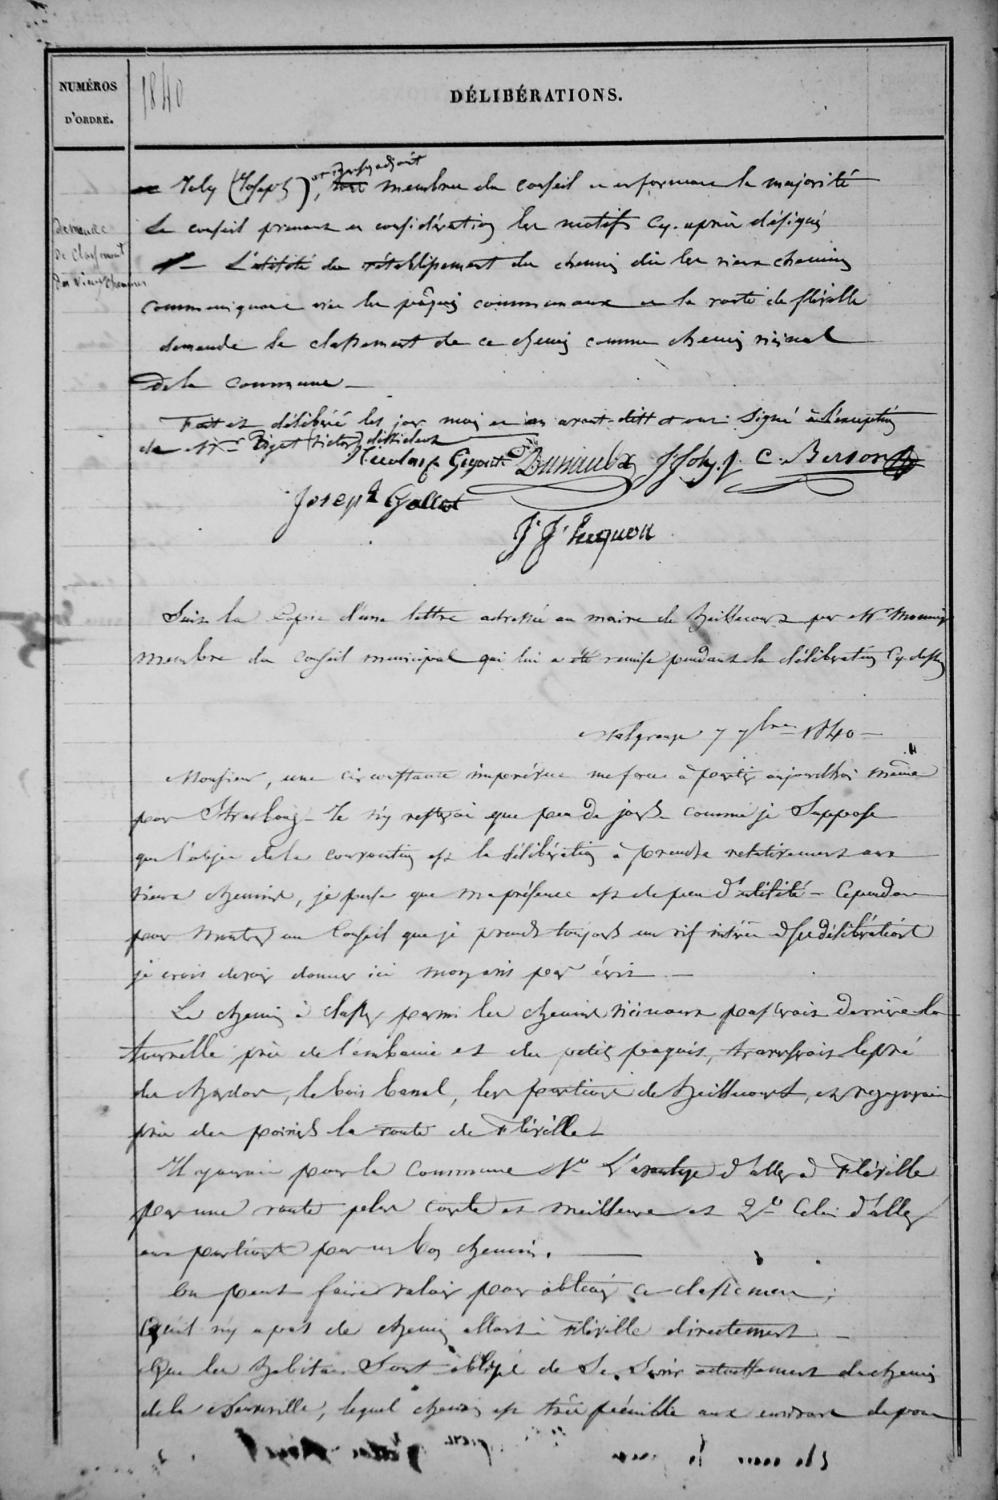 NUMÉROS
D'ORDRE.
1840
DÉLIBÉRATIONS.
Joly (Joseph), membres du conseil en formant la majorité
Demande
de Classement
Des vieux chemins
Le conseil prenant en considération les motifs cy-après désignés
L'utilité du rétablissement du chemin dit les vieux chemins
communiquant avec les pâquis communaux et la route de fléville
demande le classement de ce chemin comme chemin vicinal
de la commune
Fait et délibéré les jour mois et an avant-ditt et ont signé à l'exception
de Mr Piget (victor) dissident
J Joly C. Berson
Joseph Gallot
J. J. Hecquon
Suit la Copie d'une lettre adressée au maire de heillecourt par Mr
membre du conseil municipal qui lui a été remise pendant la délibération cy-dessus
7 7bre 1840
Monsieur, une circonstance imprévue me force à partir aujourd'hui même
pour Strasbourg. Je n'y resterai que peu de jours. comme je Suppose
que l'objet de la convocation est la délibération à prendre relativement aux
vieux chemins, je pense que ma présence est de peu d'utilité. Cependant
pour montrer au Conseil que je prends toujours un vif intérêt à ses délibérations
je crois devoir donner ici mon avis par écrit
Le chemin à classer parmi les chemins vicinaux passerait derrière la
tournelle près de l'embanie et du petit paquis, traverserait le pré
du chardon, le bois banal, les de heillecourt, et regagnerait
près des poiriers la route de Fléville
Il y aurait pour la commune 1o L'avantage d'aller à Fléville
par une route plus courte et meilleure et 2o Celui d'aller
aux par un bon chemin.
On peut faire valoir pour obtenir ce classement;
Qu'il n'y a pas de chemin allant à Fléville directement
Que les habitans Sont obligé de Se Servir actuellement du chemin
de la Neuveville, lequel chemin est très pénible aux environs du pont